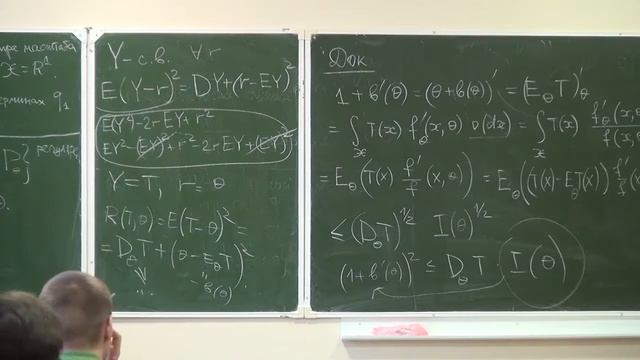 𝒳 = R¹.
q₁
Y – с.в. ∀r
E(Y−r)² = DY+(r−EY)²
EY²−2rEY+r²
EY²−(EY)²+r²−2rEY+(EY)²
Y=T, r=θ
R(T,θ)=E(T−θ)²=
=D_θT+(θ−E_θT)²
b(θ)
Док
1+b'(θ)=(θ+b(θ))'=(E_θT)'_θ
=∫_𝒳 T(x) f'_θ(x,θ) ν(dx)=∫_𝒳 T(x) f'_θ(x,θ)/f(x,
=E_θ(T(x) f'/f (x,θ))=E_θ((T(x)−E_θT(x)) f'_θ/f
≤(D_θT)^{1/2} I(θ)^{1/2}
(1+b'(θ))² ≤ D_θT I(θ)